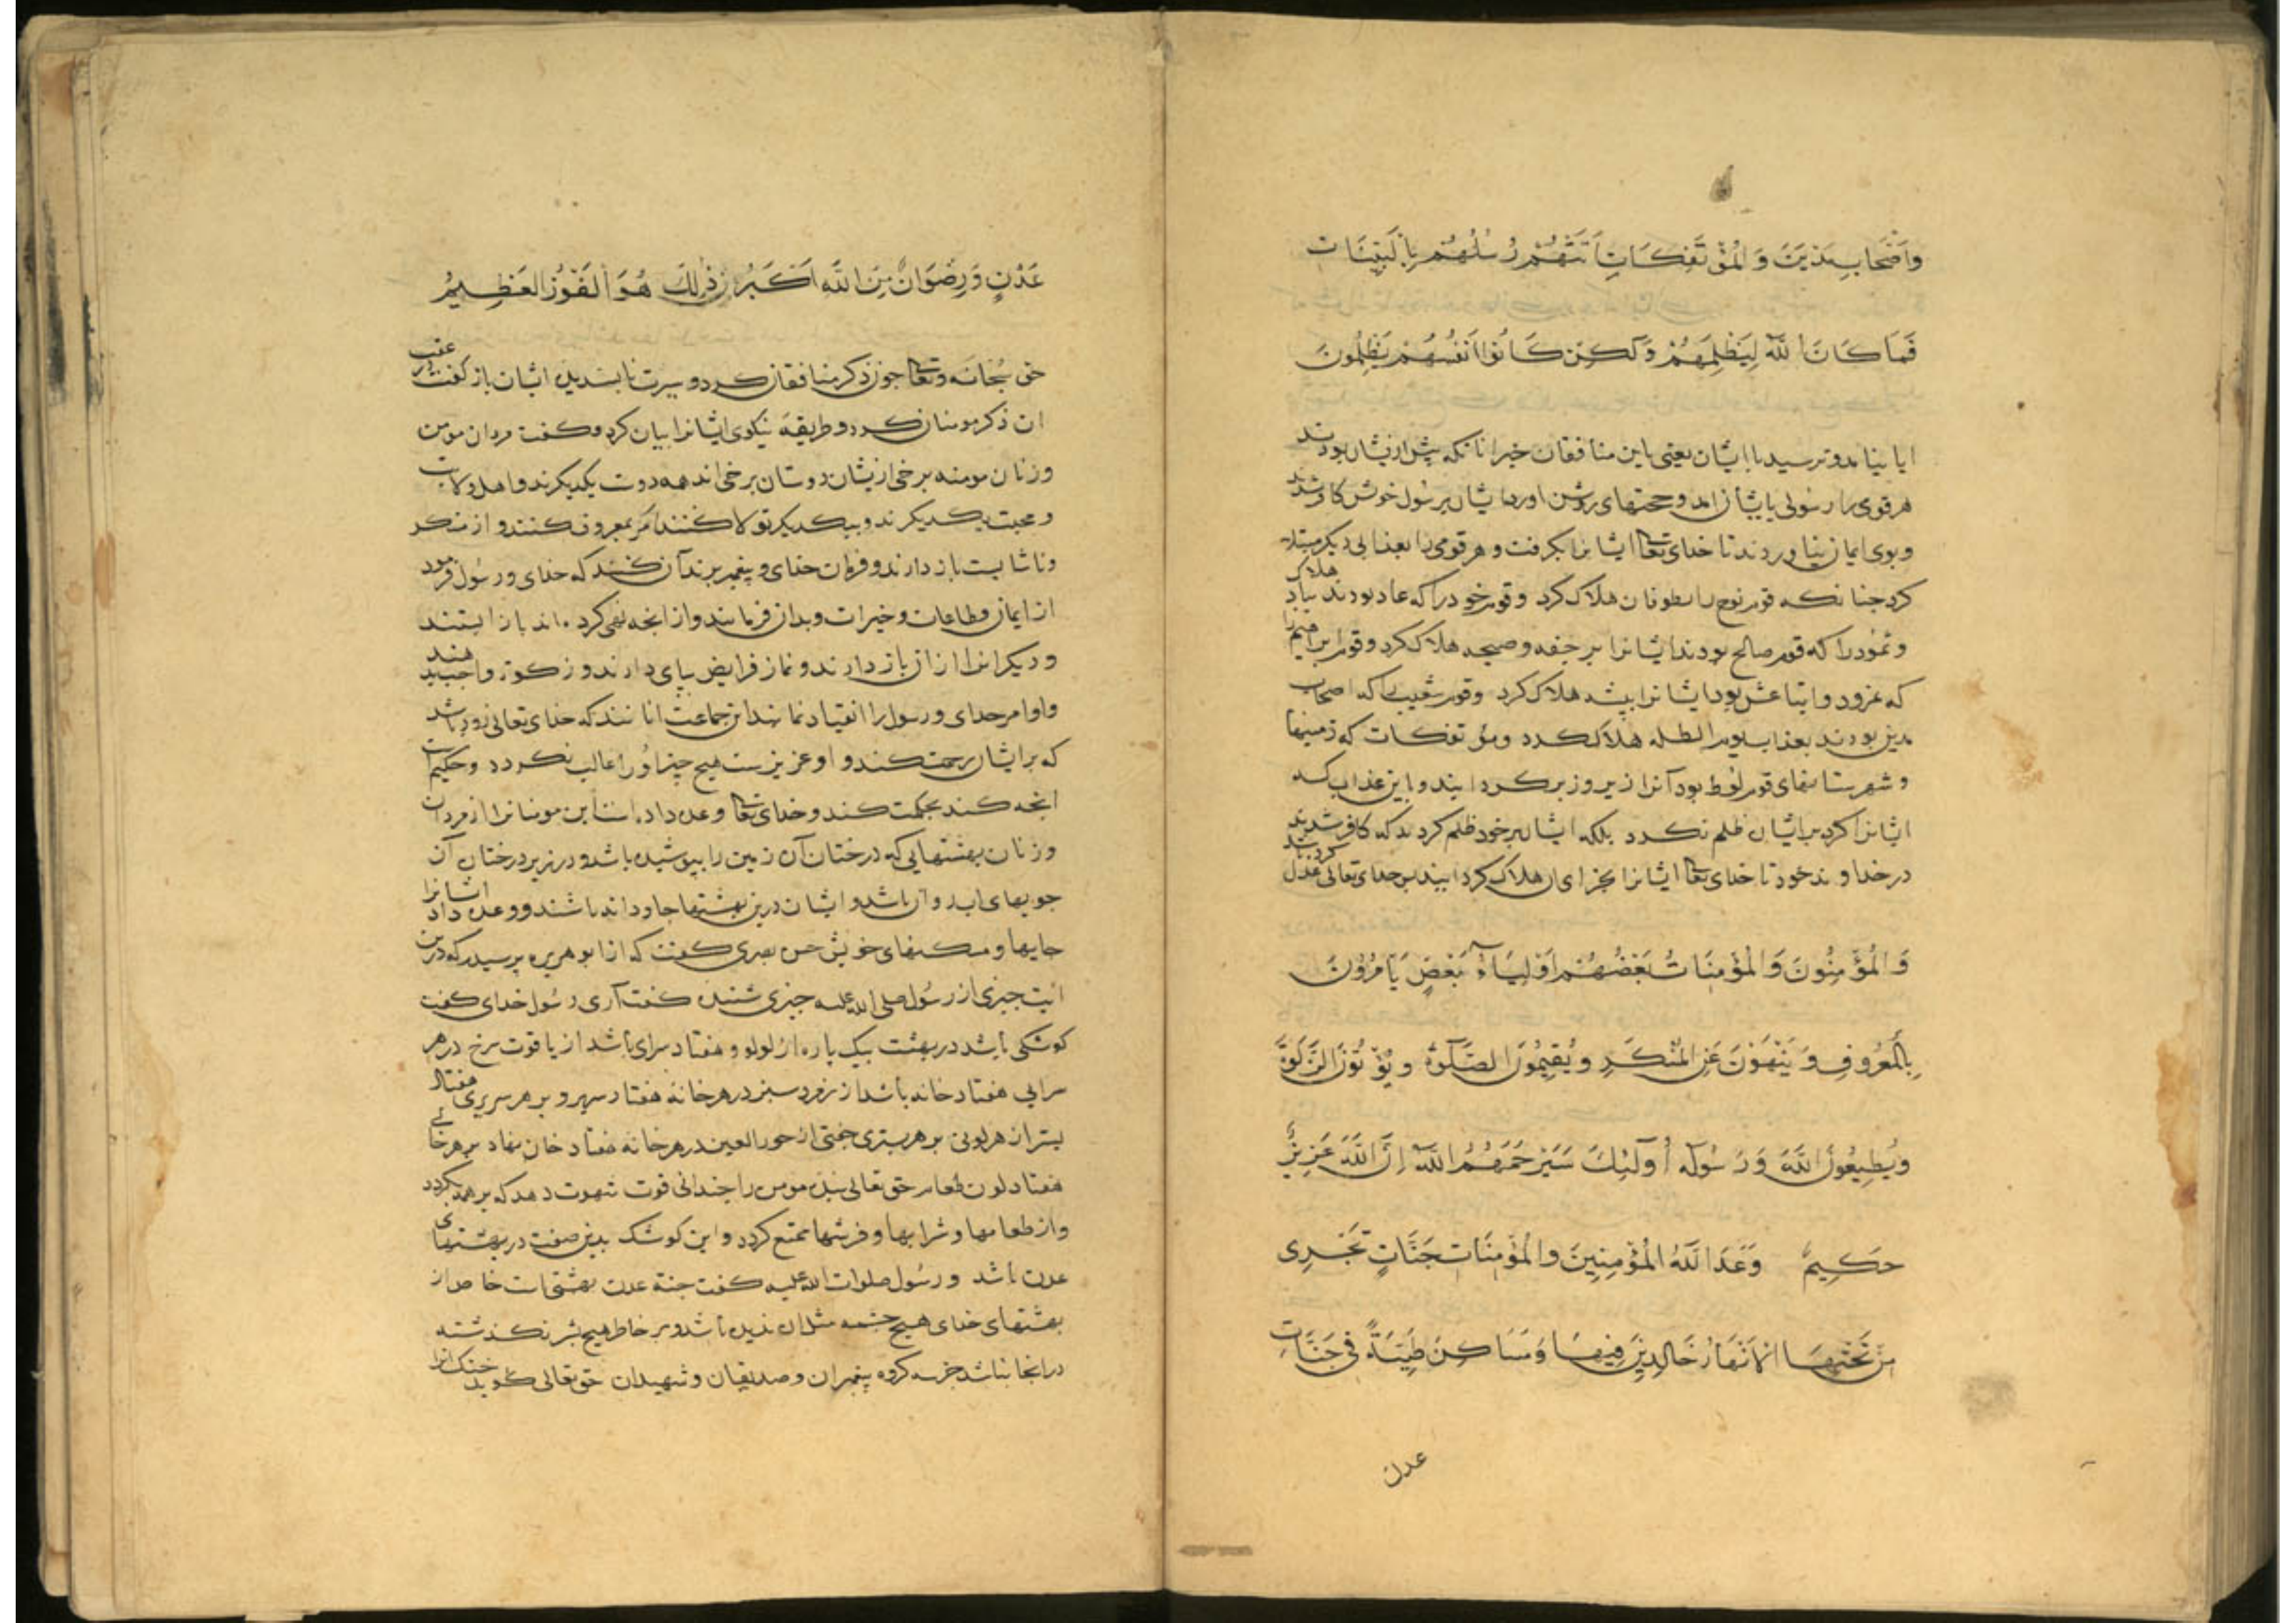 وَاَصْحَابِ مَدْيَنَ وَ الْمُؤْتَفِكَاتِ اَتَتْهُمْ رُسُلُهُمْ بِالْبَيِّنَات
فَمَا كَانَ اللّٰهُ لِيَظْلِمَهُمْ وَلٰكِنْ كَانُوا اَنْفُسَهُمْ يَظْلِمُونَ
ایا نیامد و نرسید باایشان یعنی باین منافقان خبر انانکه پیش ازیشان بودند
هر قومی را رسولی بایشان امد و حجتهای روشن اورد ایشان برسول خویش کافر شدند
و بوی ایمان نیاوردند تا خدای تعا ایشانرا بکرفت و هر قومی را بعذابی دیکر مبتلا
کرد جنانکه قوم نوح را بطوفان هلاک کرد و قوم هود را که عاد بودند بباد هلاک
و ثمود را که قوم صالح بودند ایشانرا برجفه و صیحه هلاک کرد و قوم ابراهیم را
که نمرود و اتباعش بود ایشانرا بپشه هلاک کرد و قوم شعیب که اصحاب
مدین بودند بعذاب یوم الظله هلاک کرد و مؤتفکات که زمینها
و شهرستانهای قوم لوط بود آنرا زیر و زبر کردانیند و باین عذاب که
ایشانرا کرد برایشان ظلم نکرد بلکه ایشان برخود ظلم کردند که کافر شدند
در خداوند خود تا خدای تعا ایشانرا بجزای ان هلاک کردانیند پس خدای تعالی عدل کرد
وَ الْمُؤْمِنُونَ وَ الْمُؤْمِنَاتُ بَعْضُهُمْ اَوْلِيَاءُ بَعْضٍ يَأمُرُونَ
بِالْمَعْرُوفِ وَ يَنْهَوْنَ عَنِ الْمُنْكَرِ وَيُقِيمُونَ الصَّلٰوةَ وَيُؤْتُونَ الزَّكٰوةَ
وَيُطِيعُونَ اللّٰهَ وَرَسُولَهُ أُولٰئِكَ سَيَرْحَمُهُمُ اللّٰهُ اِنَّ اللّٰهَ عَزِيزٌ
حَكِيمٌ وَعَدَ اللّٰهُ الْمُؤْمِنِينَ وَالْمُؤْمِنَاتِ جَنَّاتٍ تَجْرِى
مِنْ تَحْتِهَا الْاَنْهَارُ خَالِدِينَ فِيهَا وَمَسَاكِنَ طَيِّبَةً فى جَنَّاتِ
عدن
عَدْنٍ وَرِضْوَانٌ مِنَ اللّٰهِ اَكْبَرُ ذٰلِكَ هُوَ الْفَوْزُ الْعَظِيمُ
حق سبحانه وتعا جون ذکر منافقان کرد و سیرت ناپسندیده ایشان باز کفت در عقب
ان ذکر مومنان کرد و طریقهٔ نیکوی ایشانرا بیان کرد و کفت مردان مومن
و زنان مومنه برخی ازیشان دوستان برخی اند همه دوست یکدیکرند و اهل ولایت
و محبت یکدیکرند و بیکدیکر تولا کنند امر بمعروف کنند و از منکر
و ناشایست باز دارند و فرمان خدای و پیغمبر برند آن کنند که خدای و رسول فرمود
از ایمان و طاعات و خیرات و بدان فرمایند و از انجه نهی کرده اند باز ایستند
و دیکرانرا از ان باز دارند و نماز فرایض بپای دارند و زکوة واجب بدهند
و اوامر خدای و رسول را انقیاد نمایند این جماعت انانند که خدای تعالی زود باشد
که برایشان رحمت کند و او عزیزست هیچ چیز اورا غالب نکردد و حکیم است
انجه کند بحکمت کند و خدای تعا وعده داده است این مومنانرا از مردان
و زنان بهشتهایی که درختان آن زمین را بپوشیده باشد و در زیر درختان آن
جویهای اب روان باشد و ایشان درین بهشتها جاودانه باشند و وعده داد ایشانرا
جایها و مسکنهای خویش حسن بصری کفت که از ابو هریره پرسیدم که درین
ایت جیزی از رسول صلی الله علیه جیزی شنیدی کفت آری رسول خدای کفت
کوشکی باشد در بهشت یک پاره از لولو و هفتاد سرای باشد از یاقوت سرخ در هر
سرایی هفتاد خانه باشد از زمرد سبز در هر خانه هفتاد سریر و بر هر سریری هفتاد
بستر از هر لونی بر هر بستری جفتی از حور العین در هر خانه هفتاد خوان نهاده بر هر خوانی
هفتاد لون طعام حق تعالی بنده مومن را چندانی قوت شهوت دهد که بر همه بکردد
و از طعامها و شرابها و فرشها تمتع کردد و این کوشک بدین صفت در بهشتهای
عدن باشد و رسول صلوات الله علیه کفت جنة عدن بهشتی است خاص از
بهشتهای خدای هیچ چشمه مثل ان ندیده باشد و بر خاطر هیچ بشر نکذشته
در انجا نباشد جز سه کروه پیغمبران و صدیقان و شهیدان حق تعالی کوید خنک انرا